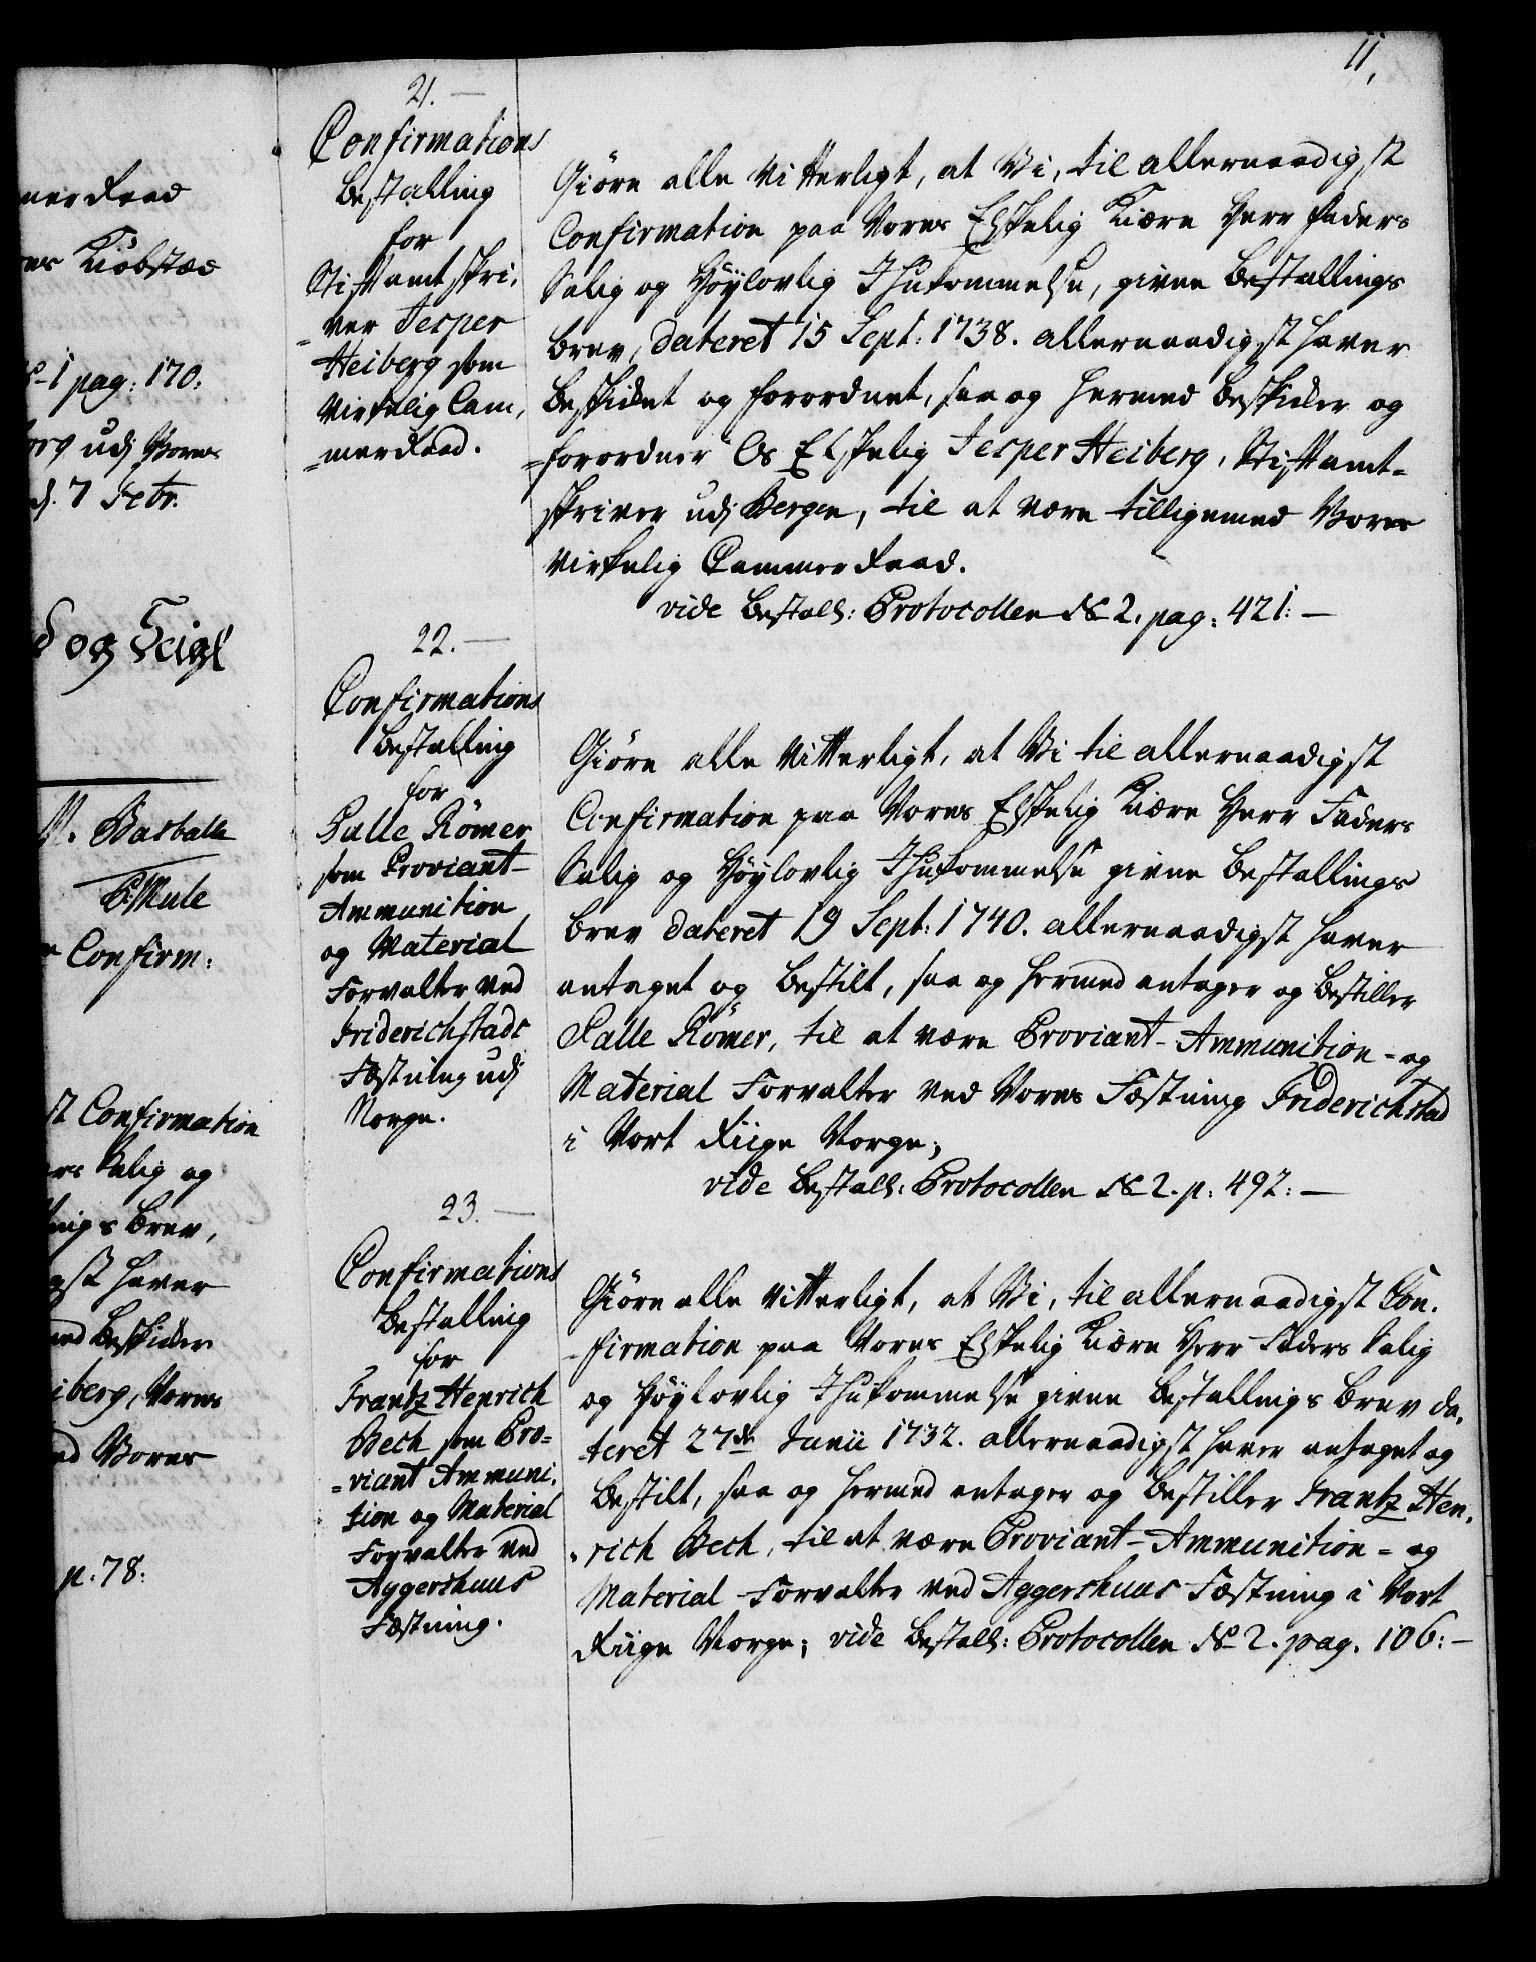 11,
mer Raad
res Kiöbstæd
No 1 pag: 170:
berg udj Vores
d. 7 Febr.
d og Teigl
W. Basballe
P. Mule
Confirm:
st Confirmation
ers Salig og
lings Brev,
igst haver
med Beskider
iberg, Vores
ed Vores
p. 78:
21. —
Confirmations
Bestalling
for
Stiftamtskri,
=ver Jesper
Heiberg som
Virkelig Cam,
=merRaad.
Giøre alle Vitterligt, at Vi, til allernaadigst
Confirmation paa Vores Elskelig Kiære Herr Faders
Salig og Höylovlig Ihukommelse, givne Bestallings
Brev, dateret 15 Sept: 1738. allernaadigst haver
Beskidet og forordnet, saa og hermed Beskider og
=forordner Os Elskelig Jesper Heiberg, Stiftamt=
skriver udj Bergen, til at være tilligemed Vores
Virkelig CammerRaad.
vide Bestall: Protocollen No 2. pag: 421: —
22. —
Confirmations
Bestalling
for
Palle Römer
som Proviant-
Ammunition
og Material
Forvalter ved
Friderichstads
Fæstning udj
Norge.
Giøre alle Vitterligt, at Vi til allernaadigst
Confirmation paa Vores Elskelig Kiære Herr Faders
Salig og Höylovlig Ihukommelse givne Bestallings
Brev dateret 19 Sept: 1740. allernaadigst haver
antaget og bestilt, saa og hermed antager og bestiller
Palle Römer, til at være Proviant- Ammunition - og
Material Forvalter ved Vores Fæstning Friderichstad
i Vort Riige Norge;
vide Bestall: Protocollen No 2. p: 492: —
23. —
Confirmations
Bestalling
for
Frantz Henrich
Bech som Pro=
=viant Ammuni,
tion og Material
Forvalter ved
Aggershuus
Fæstning.
Giøre alle Vitterligt, at Vi, til allernaadigst Con,
-firmation paa Vores Elskelig Kiære Herr Faders Salig
og Höylovlig Ihukommelse givne Bestallings Brev da,
teret 27de Junii 1732. allernaadigst haver antaget og
bestilt, saa og hermed antager og bestiller Frantz Hen,
,rich Bech, til at være Proviant- Ammunition = og
Material Forvalter ved Aggershuus Fæstning i Vort
Riige Norge; vide Bestall: Protocollen No 2. pag. 106: —